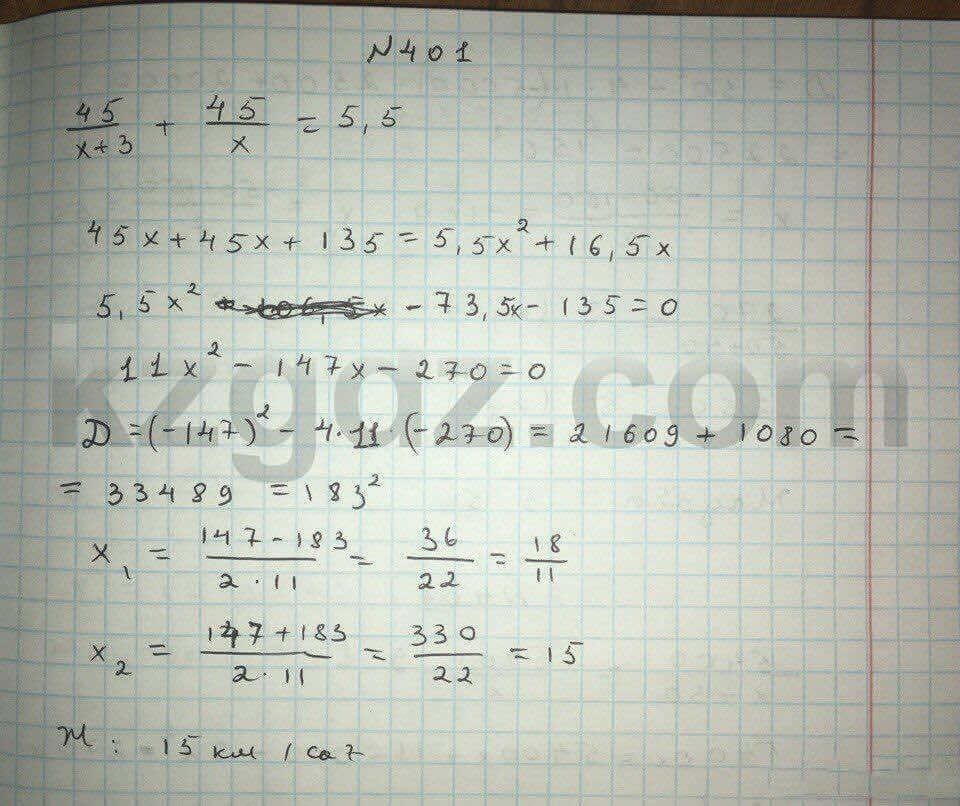 N401
45/(x+3) + 45/x = 5,5
45x+45x+135=5,5x²+16,5x
5,5x² -73,5x-135=0
11x²-147x-270=0
D=(-147)²-4·11·(-270)=21609+1080=
=33489=183²
x₁ = (147-183)/(2·11) = 36/22 = 18/11
x₂ = (147+183)/(2·11) = 330/22 = 15
Ж: 15 км/сағ
kzgdz.com